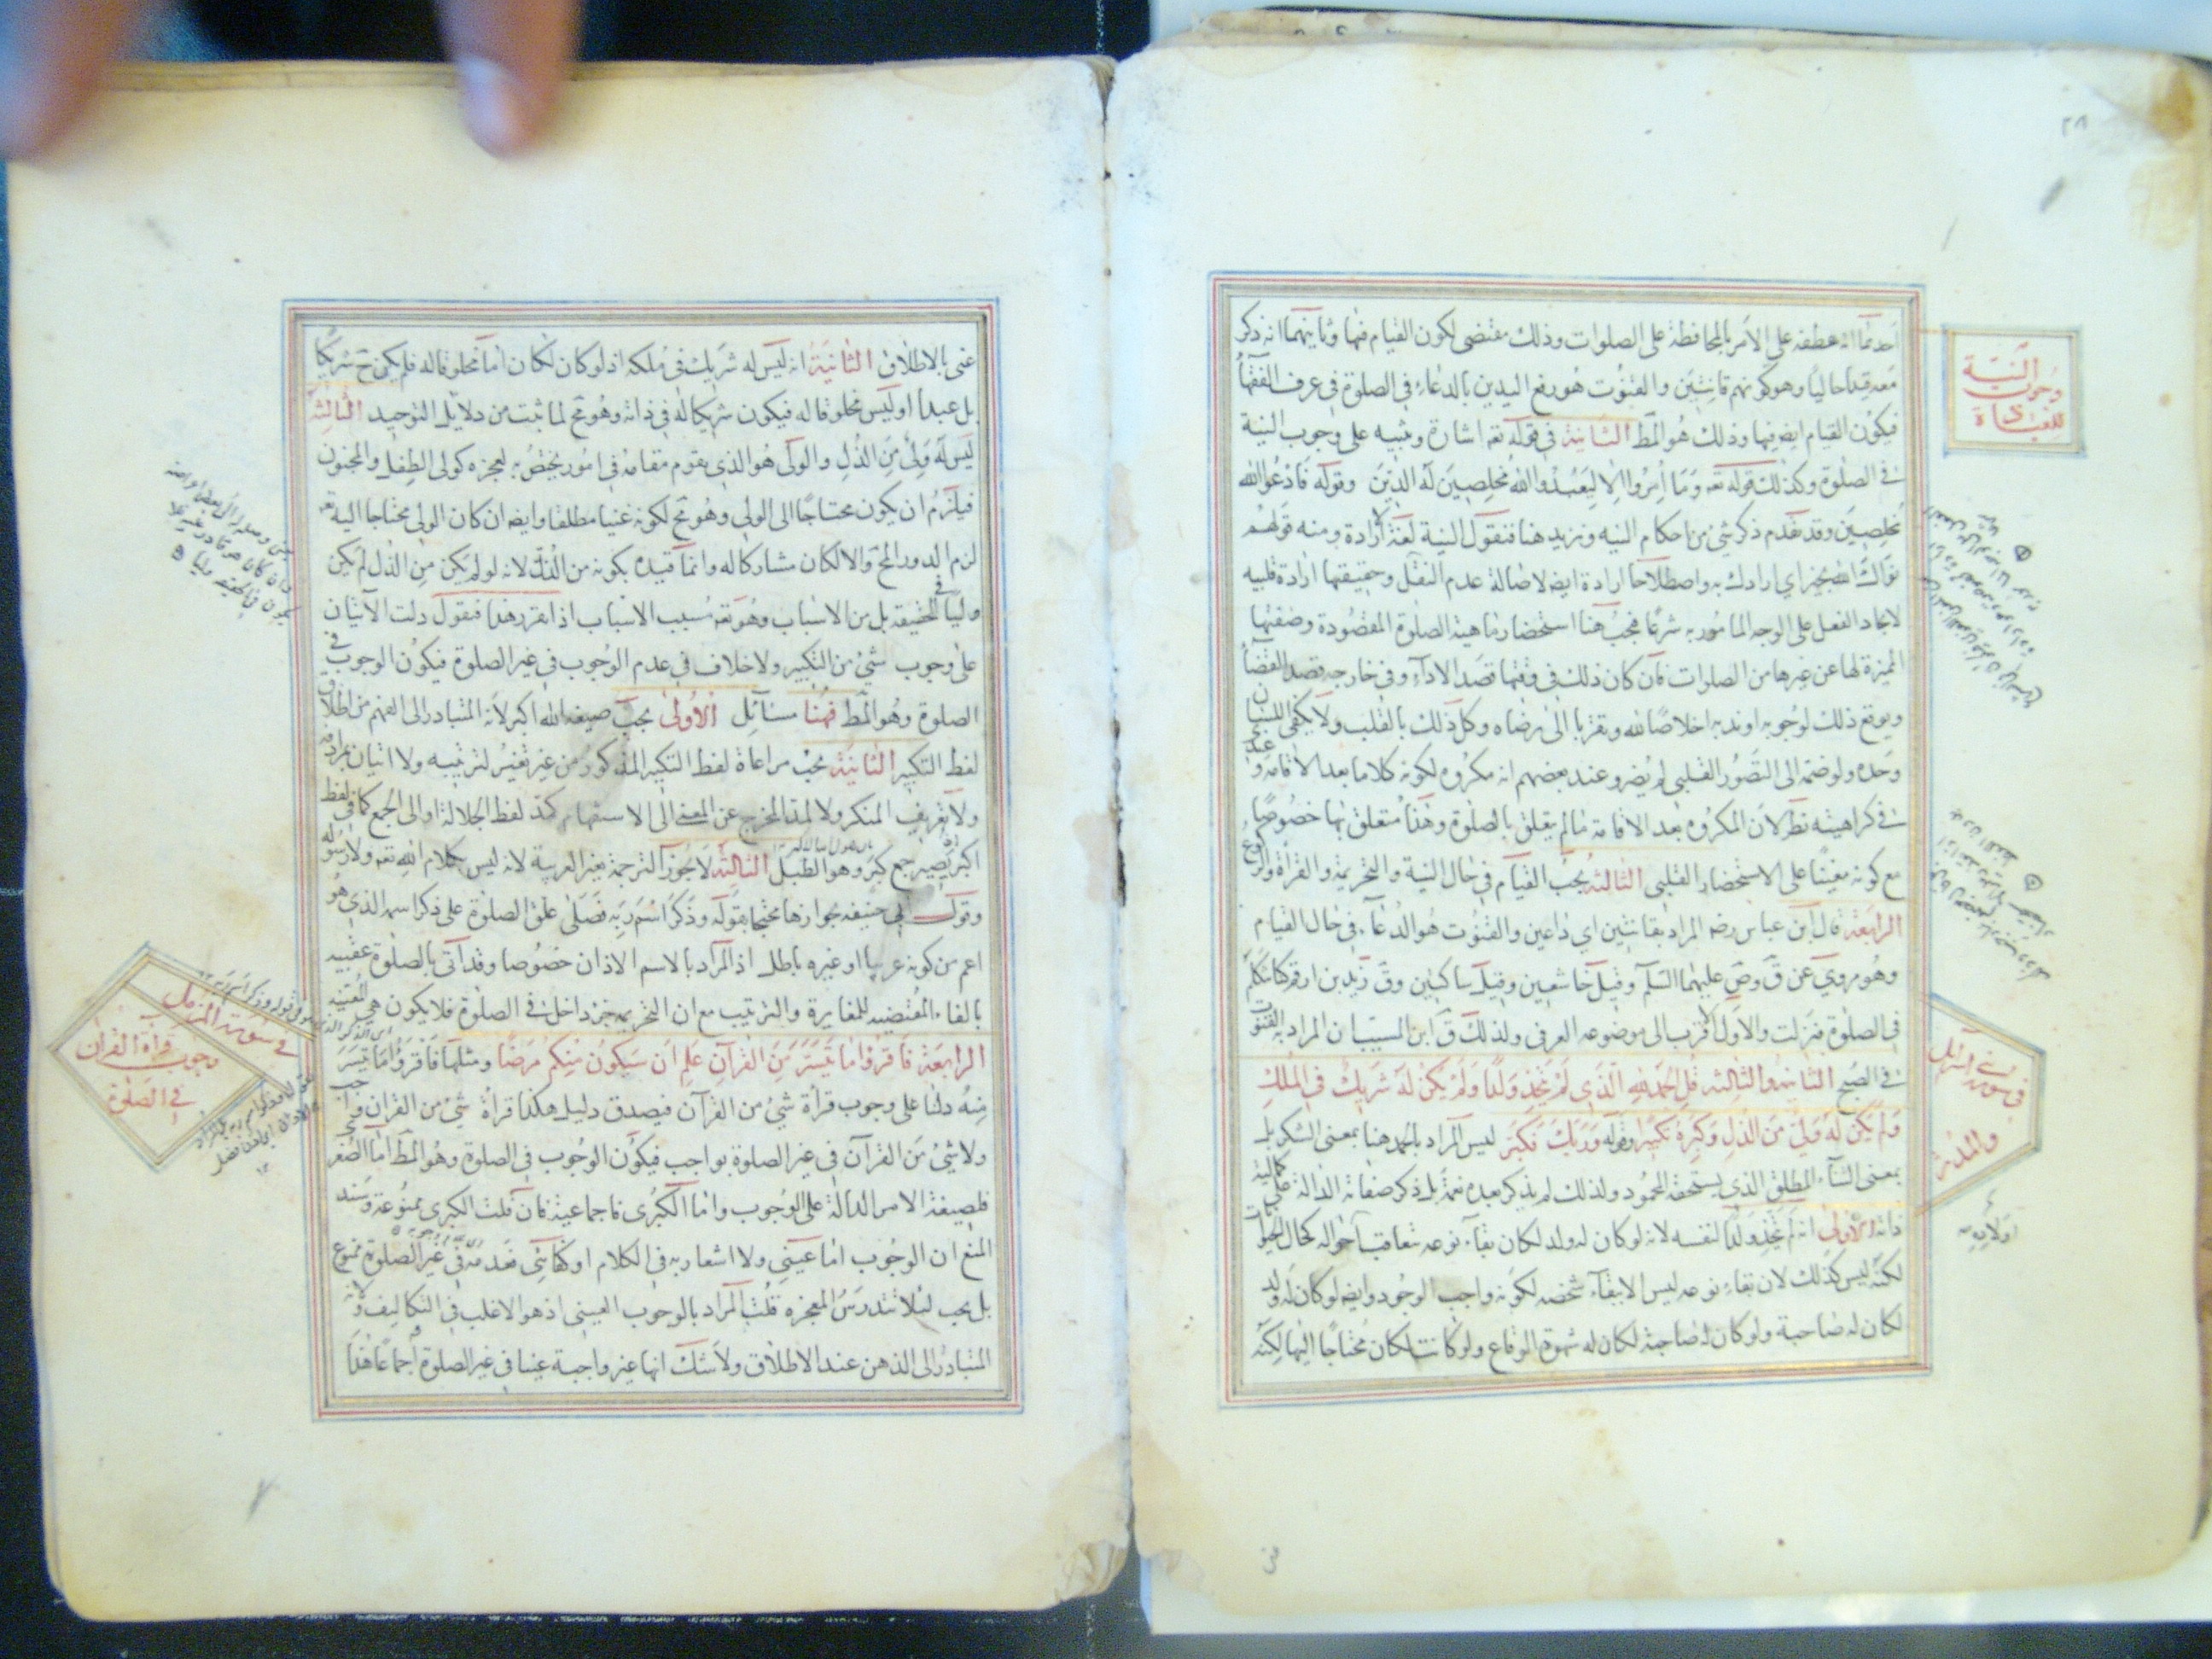 ٢٨
احدهما انه عطفه على الامر بالمحافظة على الصلوات وذلك مقتضى لكون القيام فيها وثانيهما انه ذكر
معه قيدا حاليا وهو كونهم قانتين والقنوت هو رفع اليدين بالدعاء في الصلوة في عرف الفقهآء
فيكون القيام ايضه فيها وذلك هو المط الثانية في قوله تعه اشارة وتنبيه على وجوب النية
في الصلوة وكذلك قوله تعه وما امروا الا ليعبدوا الله مخلصين له الدين وقوله فادعوا الله
مخلصين وقد تقدم ذكر شئ من احكام النيه ونزيد هنا فنقول النية لغة ارادة ومنه قولهم
نواك الله بخير اي ارادك به واصطلاحا ارادة ايضه لاصالة عدم النقل وحقيقتها ارادة قلبيه
لايجاد الفعل على الوجه المامور به شرعا فيجب هنا استحضار ماهية الصلوة المقصودة وصفتها
المميزة لها عن غيرها من الصلوات فان كان ذلك في وقتها قصد الادآء وفي خارجه قصد القضآ
ويوقع ذلك لوجوبه او ندبه اخلاصا لله وتقربا الى رضاه وكل ذلك بالقلب ولا يكفي اللسان
وحده ولو ضمه الى التصور القلبي لم يضر وعند بعضهم انه مكروه لكونه كلاما بعد الاقامه وعندي
في كراهيته نظر لان المكروه بعد الاقامة مالم يتعلق بالصلوة وهذا متعلق بها خصوصا
مع كونه معينا على الاستحضار القلبي الثالثة يجب القيام في حال النية والتحريمة والقرأة والركوع
الرابعة قال ابن عباس رضه المراد بقانتين اي داعين والقنوت هو الدعآء في حال القيام
وهو مروي عن ق وص عليهما السلم وقيل خاشعين وقيل ساكتين وق زيد بن ارقم كنا نتكلم
في الصلوة فنزلت والاول اقرب الى موضوعه العرفي ولذلك ق ابن المسيب ان المراد به القنوت
في الصبح الثانية والثالثه قل الحمد لله الذي لم يتخذ ولدا ولم يكن له شريك في الملك
ولم يكن له ولي من الذل وكبره تكبيرا وقوله وربك فكبر ليس المراد بالحمد هنا بمعنى الشكر بل
بمعنى الثنآء المطلق الذي يستحقه المحمود ولذلك لم يذكر بعده نعمة بل ذكر صفاته الدالة على كمالية
ذاته الاولى انه لم يتخذ ولدا لنفسه لانه لو كان له ولد لكان بقآء نوعه بتعاقب احواله كحال الحيوان
لكنه ليس كذلك لان بقاء نوعه ليس الا ببقآء شخصه لكونه واجب الوجود وايضه لو كان له ولد
لكان له صاحبة ولو كان له صاحبة لكان له شهوة الوقاع ولو كانت لكان محتاجا اليها لكنه
وجوب النية
للعبادة
في سورة اسرائيل
والمدثر
غنى
غنى بالاطلاق الثانية انه ليس له شريك في ملكه اذ لو كان لكان اما مخلوقا له فلم يكن ح شريكا
بل عبدا او ليس مخلوقا له فيكون شريكا له في ذاته وهو مح لما ثبت من دلايل التوحيد الثالثة
ليس له ولي من الذل والولى هو الذي يقوم مقامه في امور يختص به لعجزه كولى الطفل والمجنون
فيلزم ان يكون محتاجا الى الولى وهو مح لكونه غنيا مطلقا وايضه ان كان الولى محتاجا اليه تعه
لزم الدور المح والا لكان مشاركا له وانما قيده بكونه من الذل لانه لو لم يكن من الذل لم يكن
وليا في الحقيقه بل من الاسباب وهو تعه مسبب الاسباب اذا تقرر هذا فنقول دلت الآيتان
على وجوب شئ من التكبير ولا خلاف في عدم الوجوب في غير الصلوة فيكون الوجوب في
الصلوة وهو المط فهنا مسائل الاولى يجب صيغة الله اكبر لانه المتبادر الى الفهم من اطلاق
لفظ التكبير الثانية يجب مراعاة لفظ التكبير المذكور من غير تغيير لترتيبه ولا اتيان بمرادفه
ولا تعريف المنكر ولا لمد المخرج عن المعنى الى الاستفهام كمد لفظ الجلالة او الى الجمع كما في لفظ
اكبر يصير جمع كبر وهو الطبل الثالثة لا يجوز الترجمة بغير العربية لانه ليس بكلام الله تعه ولا رسوله
وقول ابي حنيفه بجوازها محتجا بقوله وذكر اسم ربه فصلى علق الصلوة على ذكر اسمه الذي هو
اعم من كونه عربيا او غيره باطل اذ المراد بالاسم الاذان خصوصا وقد اتى بالصلوة عقيبه
بالفاء المقتضيه للمغايرة والترتيب مع ان التحريمه جزء داخل في الصلوة فلا يكون هي المعنية
الرابعة فاقرؤا ما تيسر من القرآن علم ان سيكون منكم مرضى ومثلها فاقرؤا ما تيسر
منه دلتا على وجوب قرأة شئ من القرآن فيصدق دليل هكذا قرأة شئ من القران واجب
ولا شئ من القرآن في غير الصلوة بواجب فيكون الوجوب في الصلوة وهو المط اما الصغرى
فلصيغة الامر الدالة على الوجوب واما الكبرى فاجماعية فان قلت الكبرى ممنوعة وسند
المنع ان الوجوب اما عينى ولا اشعار به في الكلام او كفائى فعدمه في غير الصلوة ممنوع
بل يجب لئلا تندرس المعجزه قلت المراد بالوجوب العينى اذ هو الاغلب في التكاليف ولانه
المتبادر الى الذهن عند الاطلاق ولا شك انها غير واجبة عينا في غير الصلوة اجماعا هذا
في سورة المزمل
وجوب قرأة القران
في الصلوة